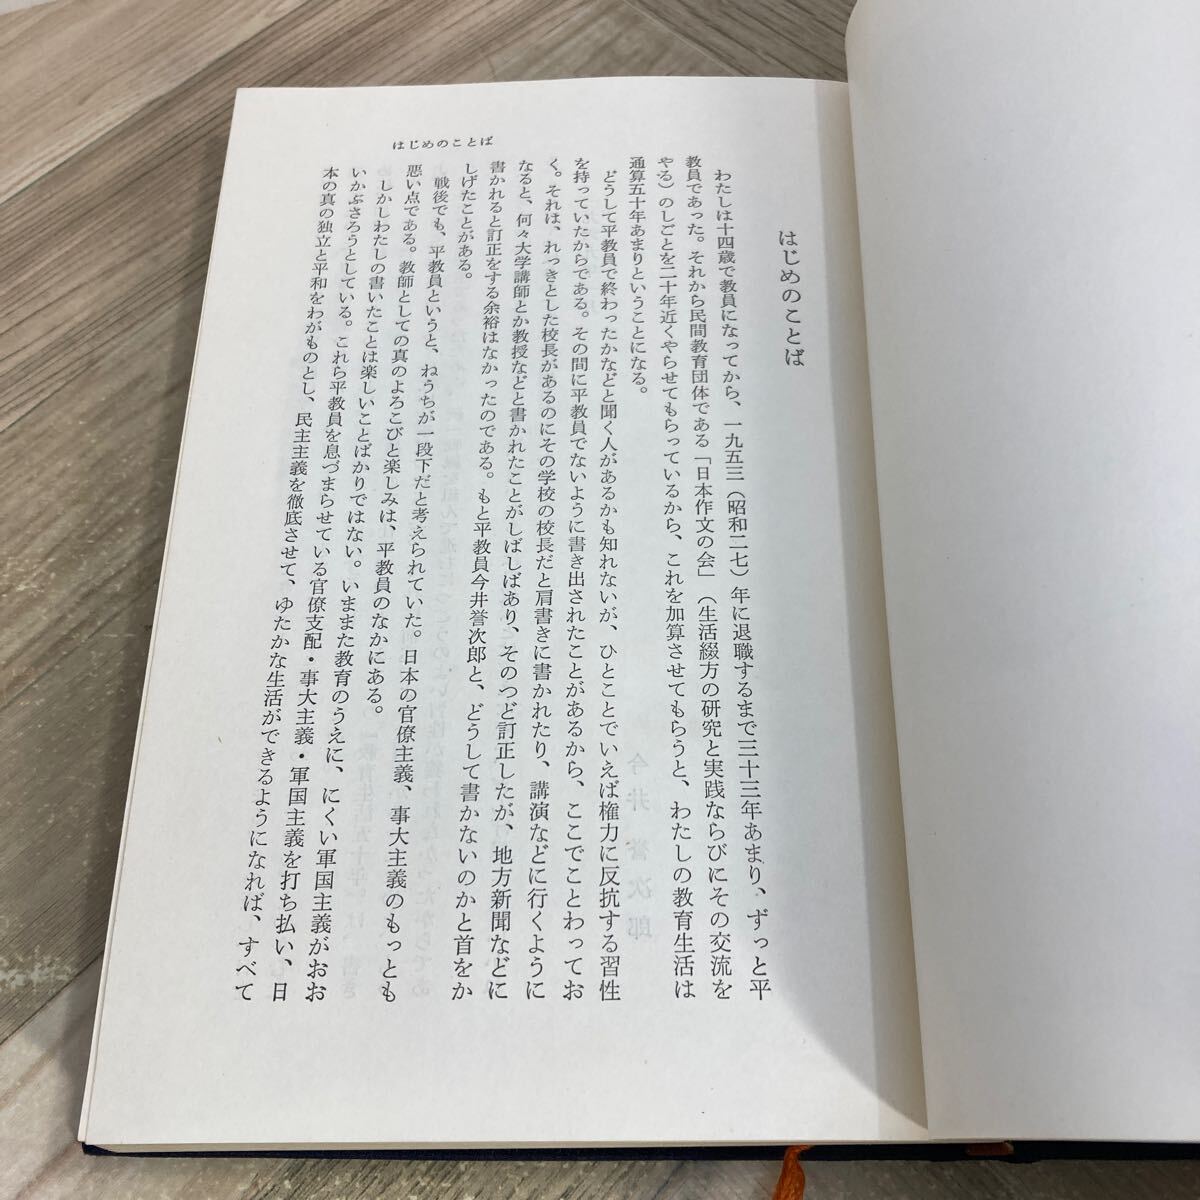 はじめのことば
はじめのことば
わたしは十四歳で教員になってから、一九五三（昭和二七）年に退職するまで三十三年あまり、ずっと平
教員であった。それから民間教育団体である「日本作文の会」（生活綴方の研究と実践ならびにその交流を
やる）のしごとを二十年近くやらせてもらっているから、これを加算させてもらうと、わたしの教育生活は
通算五十年あまりということになる。
どうして平教員で終わったかなどと聞く人があるかも知れないが、ひとことでいえば権力に反抗する習性
を持っていたからである。その間に平教員でないように書き出されたことがあるから、ここでことわってお
く。それは、れっきとした校長があるのにその学校の校長だと肩書きに書かれたり、講演などに行くように
なると、何々大学講師とか教授などと書かれたことがしばしばあり、そのつど訂正したが、地方新聞などに
書かれると訂正をする余裕はなかったのである。もと平教員今井誉次郎と、どうして書かないのかと首をか
しげたことがある。
戦後でも、平教員というと、ねうちが一段下だと考えられていた。日本の官僚主義、事大主義のもっとも
悪い点である。教師としての真のよろこびと楽しみは、平教員のなかにある。
しかしわたしの書いたことは楽しいことばかりではない。いままた教育のうえに、にくい軍国主義がおお
いかぶさろうとしている。これら平教員を息づまらせている官僚支配・事大主義・軍国主義を打ち払い、日
本の真の独立と平和をわがものとし、民主主義を徹底させて、ゆたかな生活ができるようになれば、すべて